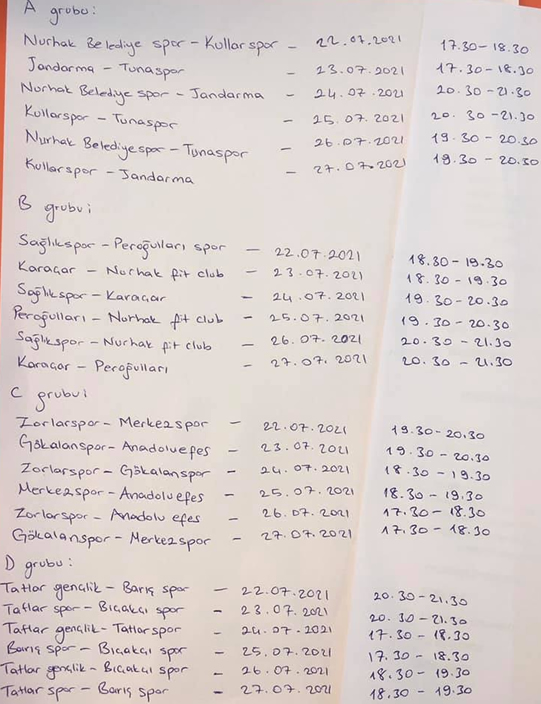 A grubu:
Nurhak Belediye spor - Kullarspor - 22.07.2021 17.30-18.30
Jandarma - Tunaspor - 23.07.2021 17.30-18.30
Nurhak Belediye spor - Jandarma - 24.07.2021 20.30-21.30
Kullarspor - Tunaspor - 25.07.2021 20.30-21.30
Nurhak Belediyespor - Tunaspor - 26.07.2021 19.30-20.30
Kullarspor - Jandarma - 27.07.2021 19.30-20.30
B grubu:
Sağlıkspor - Peroğulları spor - 22.07.2021 18.30-19.30
Karaçar - Nurhak fit club - 23.07.2021 18.30-19.30
Sağlıkspor - Karaçar - 24.07.2021 19.30-20.30
Peroğulları - Nurhak fit club - 25.07.2021 19.30-20.30
Sağlıkspor - Nurhak fit club - 26.07.2021 20.30-21.30
Karaçar - Peroğulları - 27.07.2021 20.30-21.30
C grubu:
Zorlarspor - Merkezspor - 22.07.2021 19.30-20.30
Gökalanspor - Anadoluefes - 23.07.2021 19.30-20.30
Zorlarspor - Gökalanspor - 24.07.2021 18.30-19.30
Merkezspor - Anadoluefes - 25.07.2021 18.30-19.30
Zorlarspor - Anadolu efes - 26.07.2021 17.30-18.30
Gökalanspor - Merkezspor - 27.07.2021 17.30-18.30
D grubu:
Tatlar gençlik - Barış spor - 22.07.2021 20.30-21.30
Tatlar spor - Bıçakçı spor - 23.07.2021 20.30-21.30
Tatlar gençlik - Tatlarspor - 24.07.2021 17.30-18.30
Barış spor - Bıçakçı spor - 25.07.2021 17.30-18.30
Tatlar gençlik - Bıçakçı spor - 26.07.2021 18.30-19.30
Tatlar spor - Barış spor - 27.07.2021 18.30-19.30